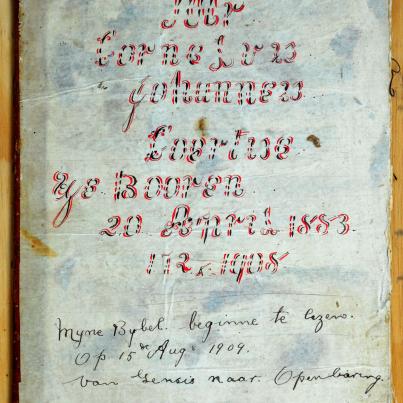 Cornelus
Johannes
Coertse
Ge Booren
20 April 1883
1908
Myne Bybel beginne te lezen.
Op 15de Aug 1909.
van Gensis naar Openbaring.